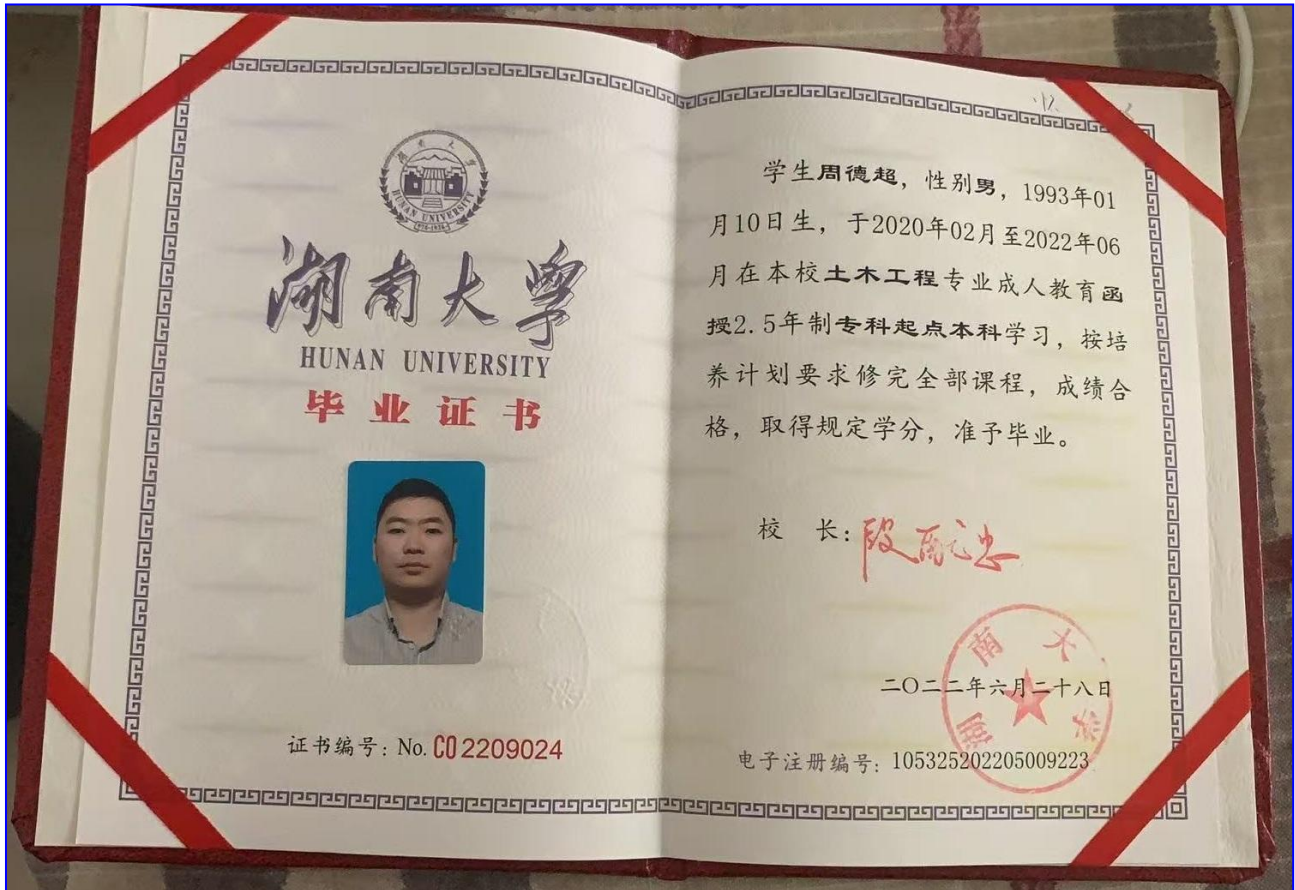 湖南大学
HUNAN UNIVERSITY
湖南大學
HUNAN UNIVERSITY
毕业证书
证书编号：No. C02209024
学生周德超，性别男，1993年01
月10日生，于2020年02月至2022年06
月在本校土木工程专业成人教育函
授2.5年制专科起点本科学习，按培
养计划要求修完全部课程，成绩合
格，取得规定学分，准予毕业。
校 长：
湖南大学
二〇二二年六月二十八日
电子注册编号：105325202205009223